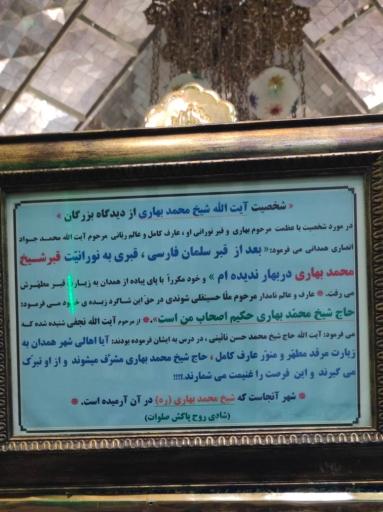 * شخصیت آیت الله شیخ محمد بهاری از دیدگاه بزرگان *
در مورد شخصیت با عظمت مرحوم بهاری و قبر نورانی او، عارف کامل و عالم ربانی مرحوم آیت الله محمد جواد
انصاری همدانی می فرمود: «بعد از قبر سلمان فارسی ، قبری به نورانیّت قبر شیخ
محمد بهاری در بهار ندیده ام » و خود مکرراً با پای پیاده از همدان به زیارت قبر مطهرش
می رفت. * عارف و عالم نامدار مرحوم ملّا حسینقلی شوندی در حق این شاگرد زبده ی خود می فرمود:
حاج شیخ محمّد بهاری حکیم اصحاب من است».* از مرحوم آیت الله نجفی شنیده شده که
می فرمود: آیت الله حاج شیخ محمد حسن نائینی ، در درس به ایشان فرموده بودند: آیا اهالی شهر همدان به
زیارت مرقد مطهّر و منوّر عارف کامل ، حاج شیخ محمد بهاری مشرّف میشوند و از او تبرّک
می گیرند و این فرصت را غنیمت می شمارند.!!!!
* شهر آنجاست که شیخ محمد بهاری (ره) در آن آرمیده است. *
(شادی روح پاکش صلوات)